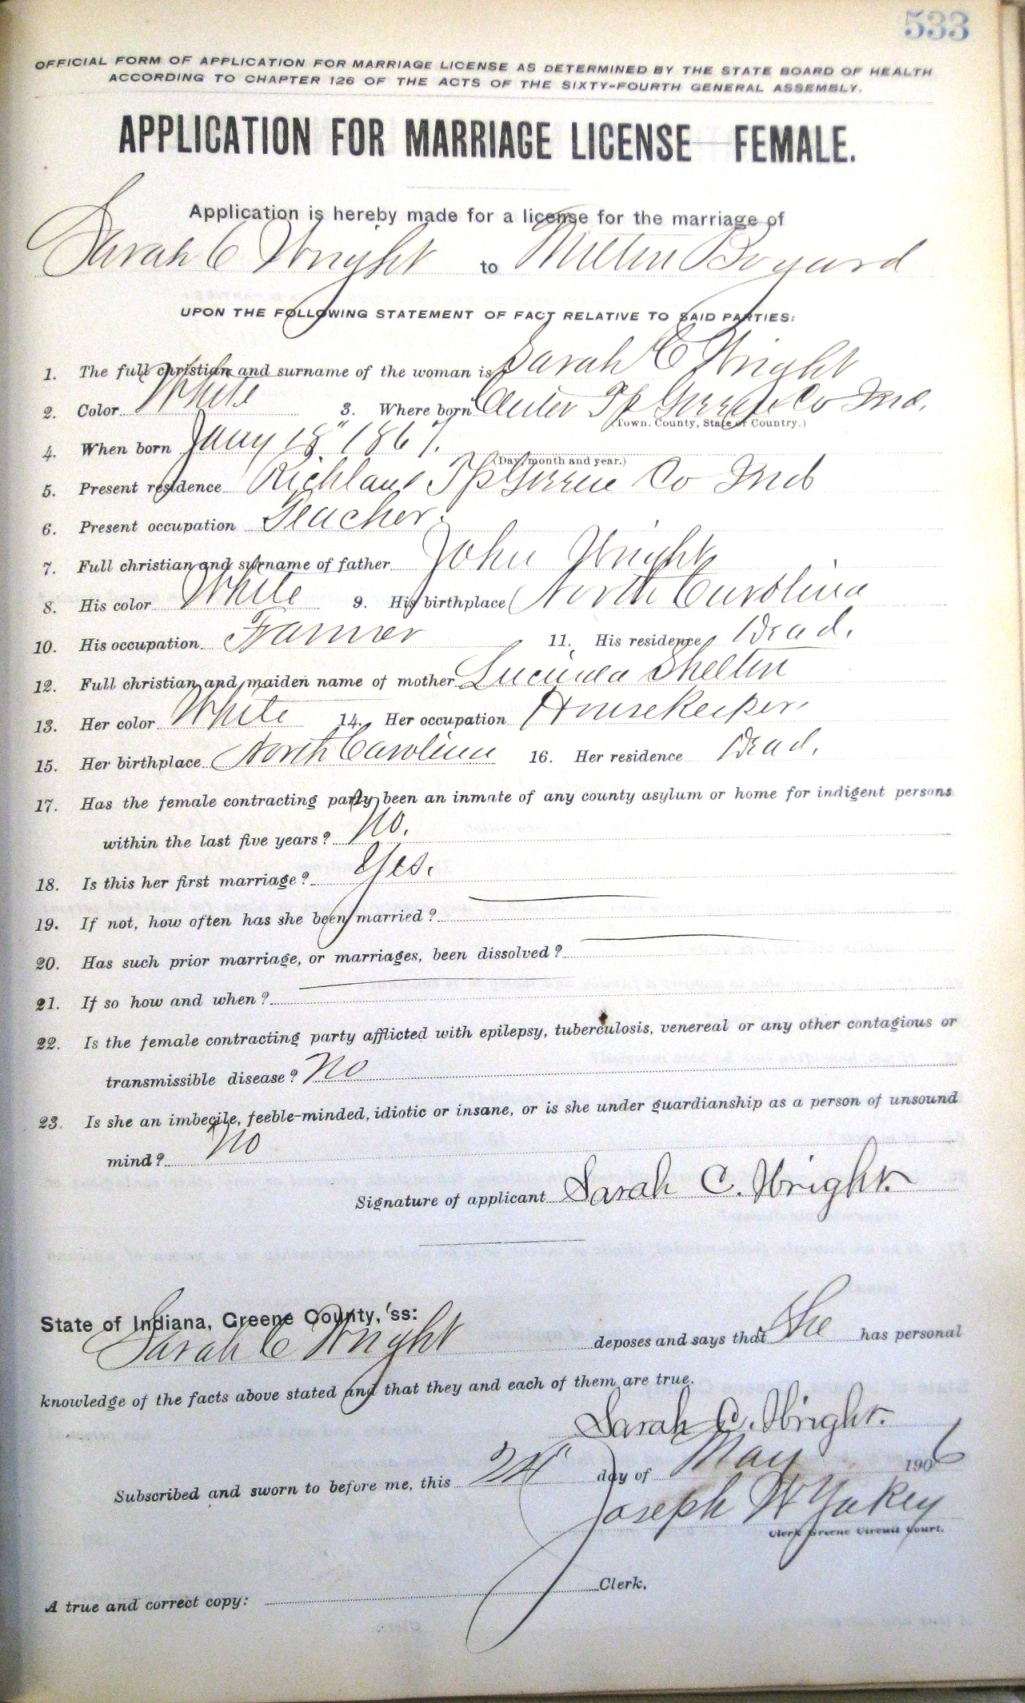 533
OFFICIAL FORM OF APPLICATION FOR MARRIAGE LICENSE AS DETERMINED BY THE STATE BOARD OF HEALTH
ACCORDING TO CHAPTER 126 OF THE ACTS OF THE SIXTY-FOURTH GENERAL ASSEMBLY.
APPLICATION FOR MARRIAGE LICENSE FEMALE.
Application is hereby made for a license for the marriage of
Sarah C Wright to Milton Bogard
UPON THE FOLLOWING STATEMENT OF FACT RELATIVE TO SAID PARTIES:
1. The full christian and surname of the woman is Sarah C Wright
2. Color White 3. Where born Center Tp Greene Co Ind.
(Town. County, State or Country.)
4. When born Jany 18" 1867.
(Day, month and year.)
5. Present residence Richland Tp Greene Co Ind
6. Present occupation Teacher.
7. Full christian and surname of father John Wright
8. His color White 9. His birthplace North Carolina
10. His occupation Farmer 11. His residence Dead.
12. Full christian and maiden name of mother Lucinda Shelton
13. Her color White 14. Her occupation Housekeeper
15. Her birthplace North Carolina 16. Her residence Dead.
17. Has the female contracting party been an inmate of any county asylum or home for indigent persons
within the last five years? No.
18. Is this her first marriage? Yes.
19. If not, how often has she been married?
20. Has such prior marriage, or marriages, been dissolved?
21. If so how and when?
22. Is the female contracting party afflicted with epilepsy, tuberculosis, venereal or any other contagious or
transmissible disease? No
23. Is she an imbecile, feeble-minded, idiotic or insane, or is she under guardianship as a person of unsound
mind? No
Signature of applicant Sarah C. Wright.
State of Indiana, Greene County, ss:
Sarah C Wright deposes and says that She has personal
knowledge of the facts above stated and that they and each of them are true.
Sarah C. Wright.
Subscribed and sworn to before me, this 24" day of May 1906
Joseph W Yakey
Clerk Greene Circuit Court.
A true and correct copy: Clerk.